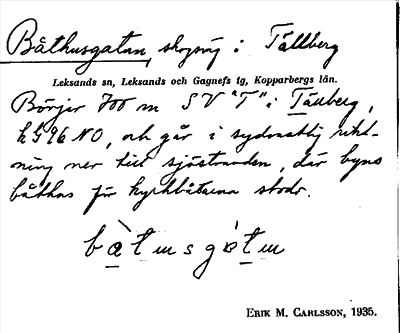 Båthusgatan, skogsväg i Tällberg
Leksands sn, Leksands och Gagnefs tg, Kopparbergs län.
Börjar 700 m SV "T" i Tällberg,
h G 96 NO, och går i sydvästlig rikt-
ning ner till sjöstranden, där byns
båthus för kyrkbåtarna stodo.
Erik M. Carlsson, 1935.